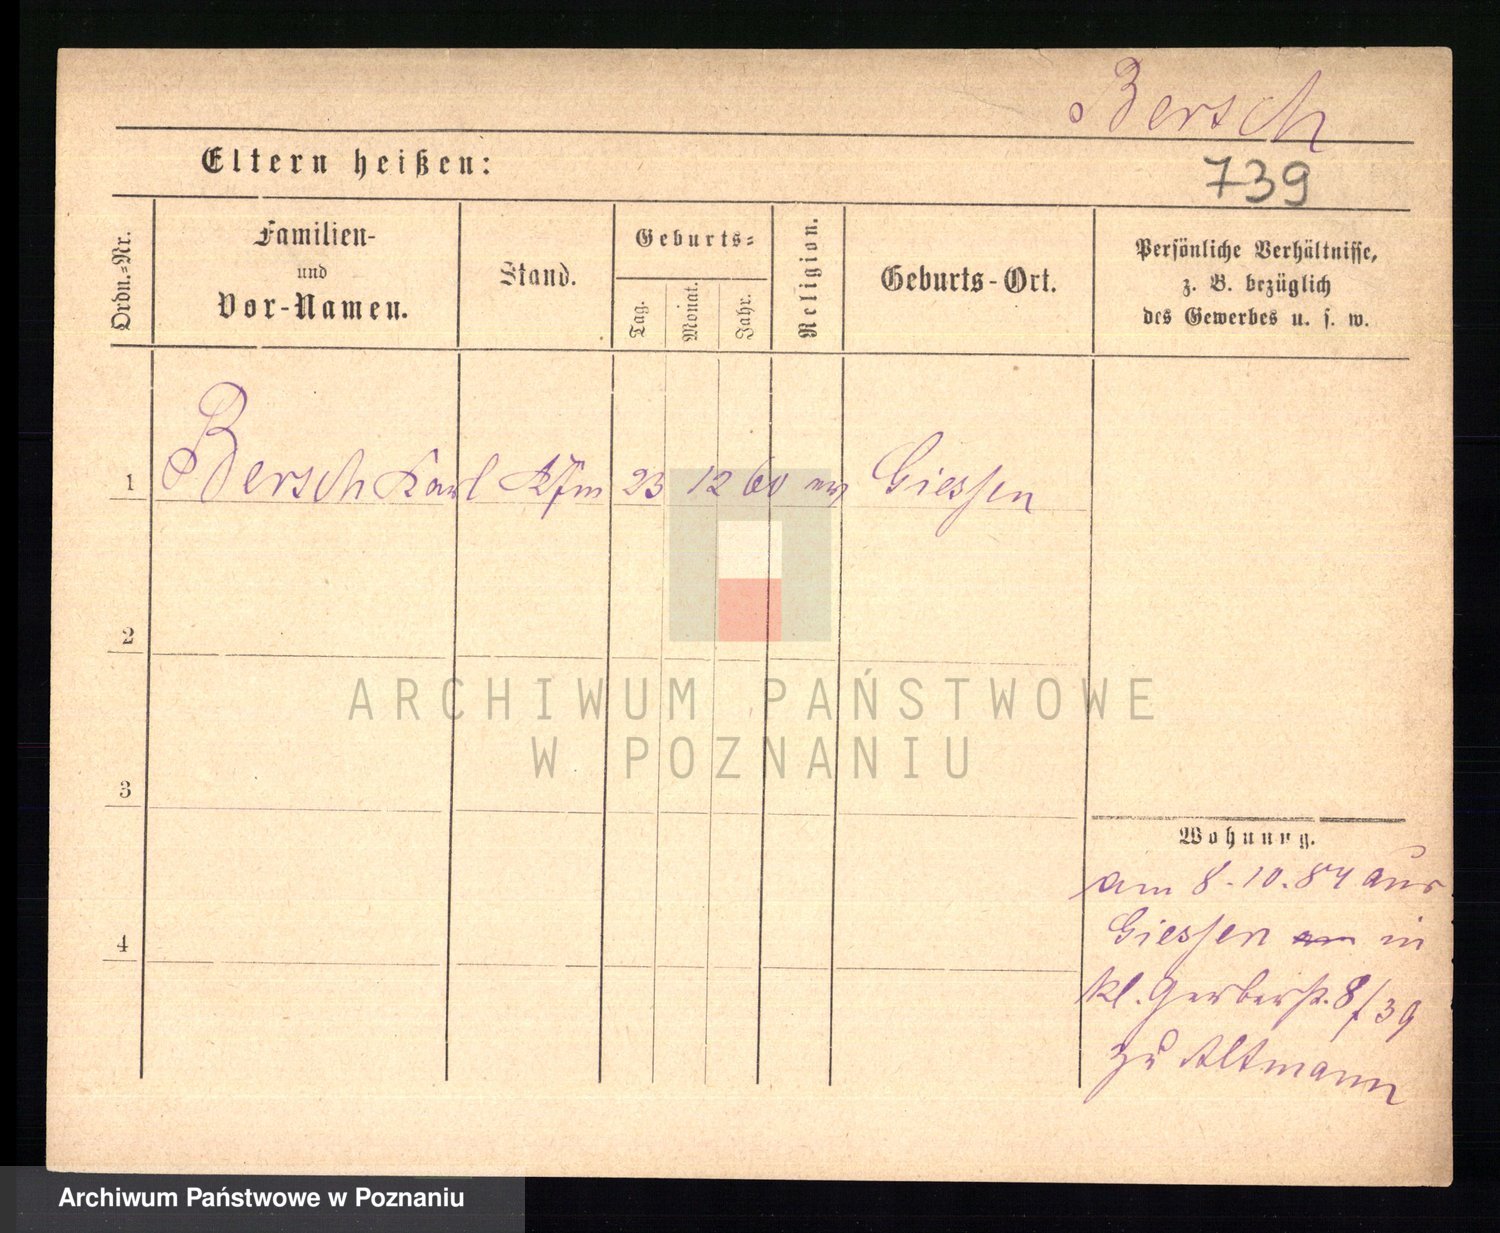 Bersch
Eltern heißen:
739
Ordn.=Nr.
Familien-
und
Vor-Namen.
Stand.
Geburts=
Tag.
Monat.
Jahr.
Religion.
Geburts-Ort.
Persönliche Verhältnisse,
z. B. bezüglich
des Gewerbes u. s. w.
1 Bersch Karl Kfm 23 12 60 ev Giessen
2
3
4
Wohnung.
am 8.10.84 aus
Giessen in
kl. Gerberstr. 8/39
zu Altmann
ARCHIWUM PAŃSTWOWE
W POZNANIU
Archiwum Państwowe w Poznaniu